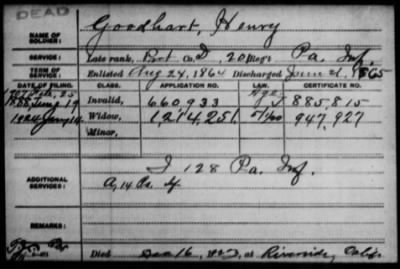 DEAD
NAME OF SOLDIER: Goodhart, Henry
SERVICE: Late rank, Pvt Co. D, 201 Reg't Pa. Inf.
TERM OF SERVICE: Enlisted Aug 24, 1864 Discharged June 21, 1865
DATE OF FILING. CLASS. APPLICATION NO. LAW. CERTIFICATE NO.
1888 Aug 19 Invalid, 660,933 885,815
1924 Jany 14 Widow, 1,214,251 947,927
Minor,
ADDITIONAL SERVICES: I 128 Pa. Inf.
REMARKS:
Died Dec 16, at Riverside, Calif.